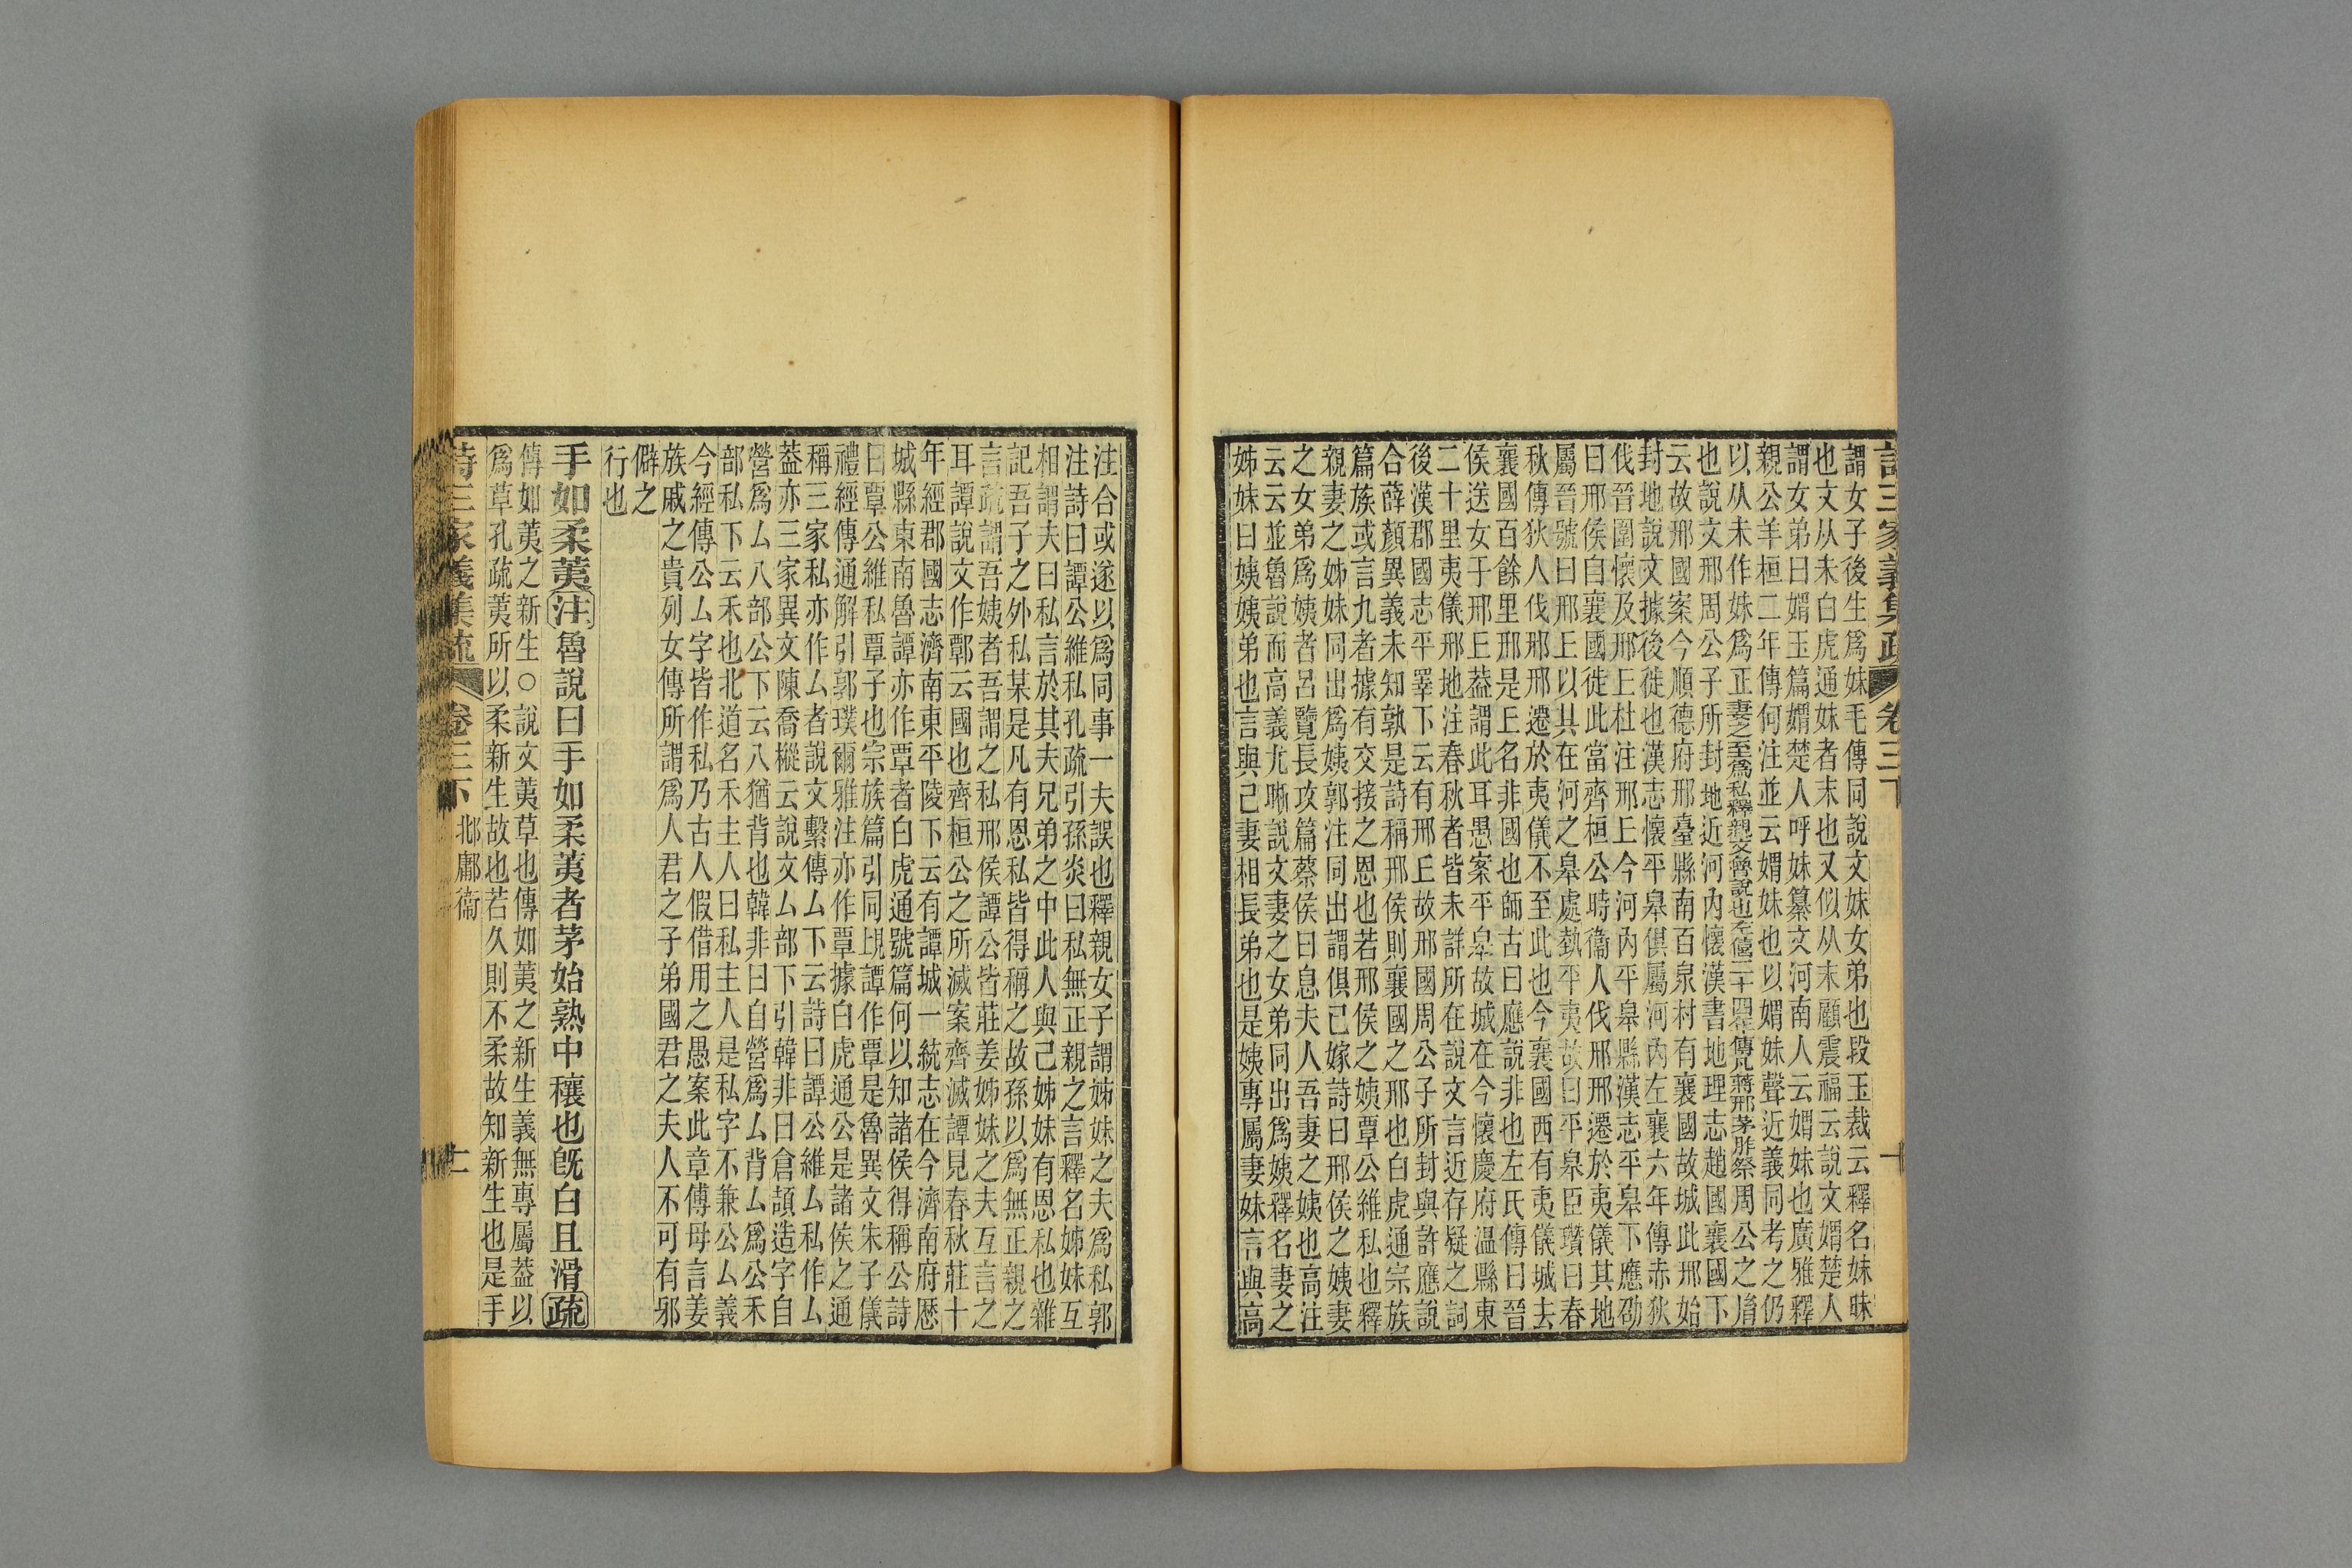 詩三家義集疏 卷三下 十
謂女子後生爲妹毛傳同說文妹女弟也段玉裁云釋名妹昧
也文从未白虎通妹者末也又似从末顧震福云說文媦楚人
謂女弟曰媦玉篇媦楚人呼妹纂文河南人云媦妹也廣雅釋
親公羊桓二年傳何注並云媦妹也以媦妹聲近義同考之仍
以从未作妹爲正妻之至爲私釋親文魯說也左僖二十四年傳凡蔣邢茅胙祭周公之胤
也說文邢周公子所封地近河內懷漢書地理志趙國襄國下
云故邢國案今順德府邢臺縣南百泉村有襄國故城此邢始
封地說文據後徙也漢志懷平皋俱屬河內左襄六年傳赤狄
伐晉圍懷及邢𠀉杜注邢𠀉今河內平皋縣漢志平皋下應劭
曰邢侯自襄國徙此當齊桓公時衞人伐邢邢遷於夷儀其地
屬晉號曰邢𠀉以其在河之皋處埶平夷故曰平皋臣瓚曰春
秋傳狄人伐邢邢遷於夷儀不至此也今襄國西有夷儀城去
襄國百餘里邢是𠀉名非國也師古曰應說非也左氏傳曰晉
侯送女于邢𠀉葢謂此耳愚案平皋故城在今懷慶府温縣東
二十里夷儀邢地注春秋者皆未詳所在說文言近存疑之詞
後漢郡國志平睪下云有邢𠀉故邢國周公子所封與許應說
合薛顏異義未知孰是詩稱邢侯則襄國之邢也白虎通宗族
篇族或言九者據有交接之恩也若邢侯之姨覃公維私也釋
親妻之姊妹同出爲姨郭注同出謂俱已嫁詩曰邢侯之姨妻
之女弟爲姨者呂覽長攻篇蔡侯曰息夫人吾妻之姨也高注
云云並魯說而高義尤晰說文妻之女弟同出爲姨釋名妻之
姊妹曰姨姨弟也言與己妻相長弟也是姨專屬妻妹言與高
注合或遂以爲同事一夫誤也釋親女子謂姊妹之夫爲私郭
注詩曰譚公維私孔疏引孫炎曰私無正親之言釋名姊妹互
相謂夫曰私言於其夫兄弟之中此人與己姊妹有恩私也雜
記吾子之外私某是凡有恩私皆得稱之故孫以爲無正親之
言疏謂吾姨者吾謂之私邢侯譚公皆莊姜姊妹之夫互言之
耳譚說文作鄿云國也齊桓公之所滅案齊滅譚見春秋莊十
年經郡國志濟南東平陵下云有譚城一統志在今濟南府歷
城縣東南魯譚亦作覃者白虎通號篇何以知諸侯得稱公詩
曰覃公維私覃子也宗族篇引同㫒譚作覃是魯異文朱子儀
禮經傳通解引郭璞爾雅注亦作覃據白虎通公是諸侯之通
稱三家私亦作厶者說文繫傳厶下云詩曰譚公維厶私作厶
葢亦三家異文陳喬樅云說文厶部下引韓非曰倉頡造字自
營爲厶八部公下云八猶背也韓非曰自營爲厶背厶爲公禾
部私下云禾也北道名禾主人曰私主人是私字不兼公厶義
今經傳公厶字皆作私乃古人假借用之愚案此章傅母言姜
族戚之貴列女傳所謂爲人君之子弟國君之夫人不可有邪
僻之
行也
手如柔荑注魯說曰手如柔荑者茅始熟中穰也旣白且滑疏
傳如荑之新生○說文荑草也傳如荑之新生義無專屬葢以
爲草孔疏荑所以柔新生故也若久則不柔故知新生也是手
詩三家義集疏 卷三下 邶鄘衞 二